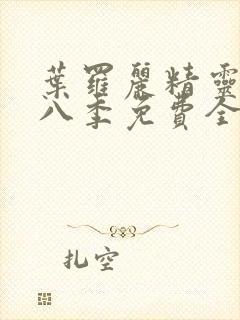 葉羅麗精靈
八季免費全
扎空